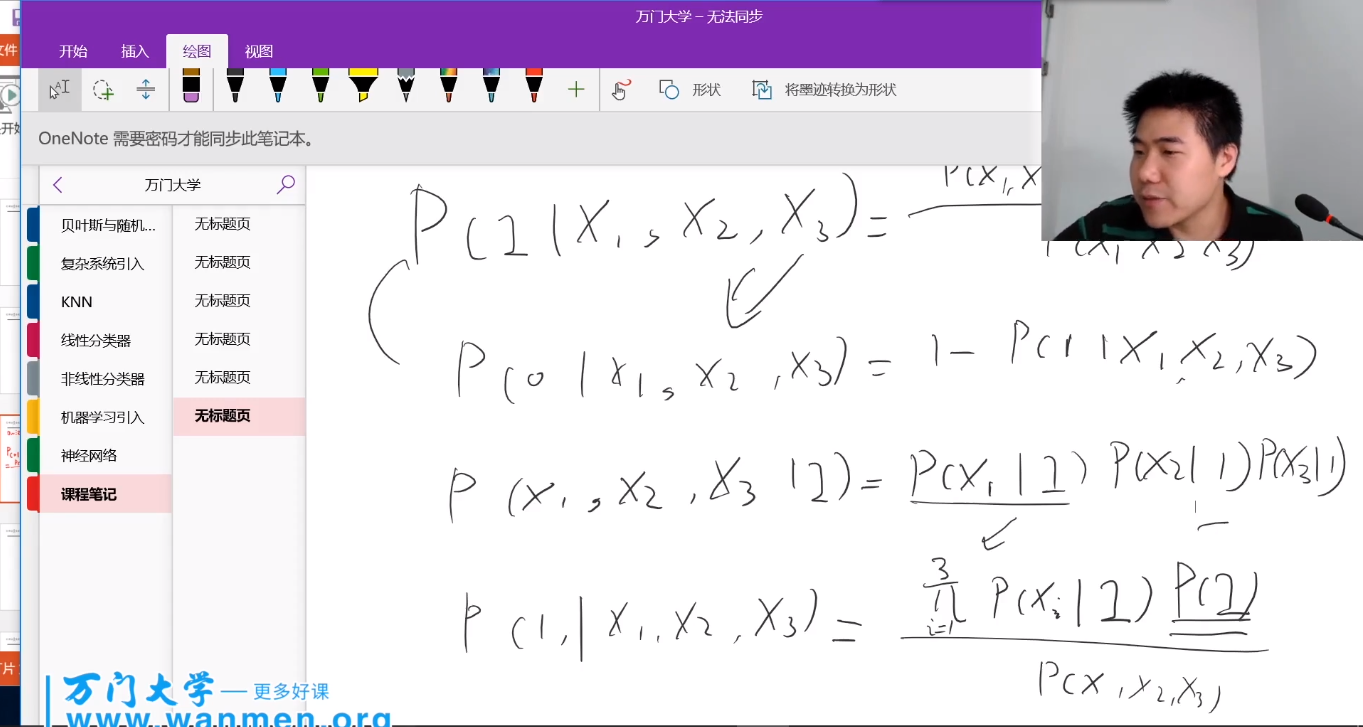 万门大学 – 无法同步
文件
开始 插入 绘图 视图
形状 将墨迹转换为形状
OneNote 需要密码才能同步此笔记本。
万门大学
贝叶斯与随机...
复杂系统引入
KNN
线性分类器
非线性分类器
机器学习引入
神经网络
课程笔记
无标题页
无标题页
无标题页
无标题页
无标题页
无标题页
P(1|X₁, X₂, X₃) =
P(0|X₁, X₂, X₃) = 1 - P(1|X₁ X₂, X₃)
P(X₁, X₂, X₃|1) = P(X₁|1) P(X₂|1) P(X₃|1)
P(1,|X₁, X₂, X₃) =
3
∏ P(Xᵢ|1) P(1)
i=1
P(X, X₂, X₃)
万门大学 — 更多好课
www.wanmen.org